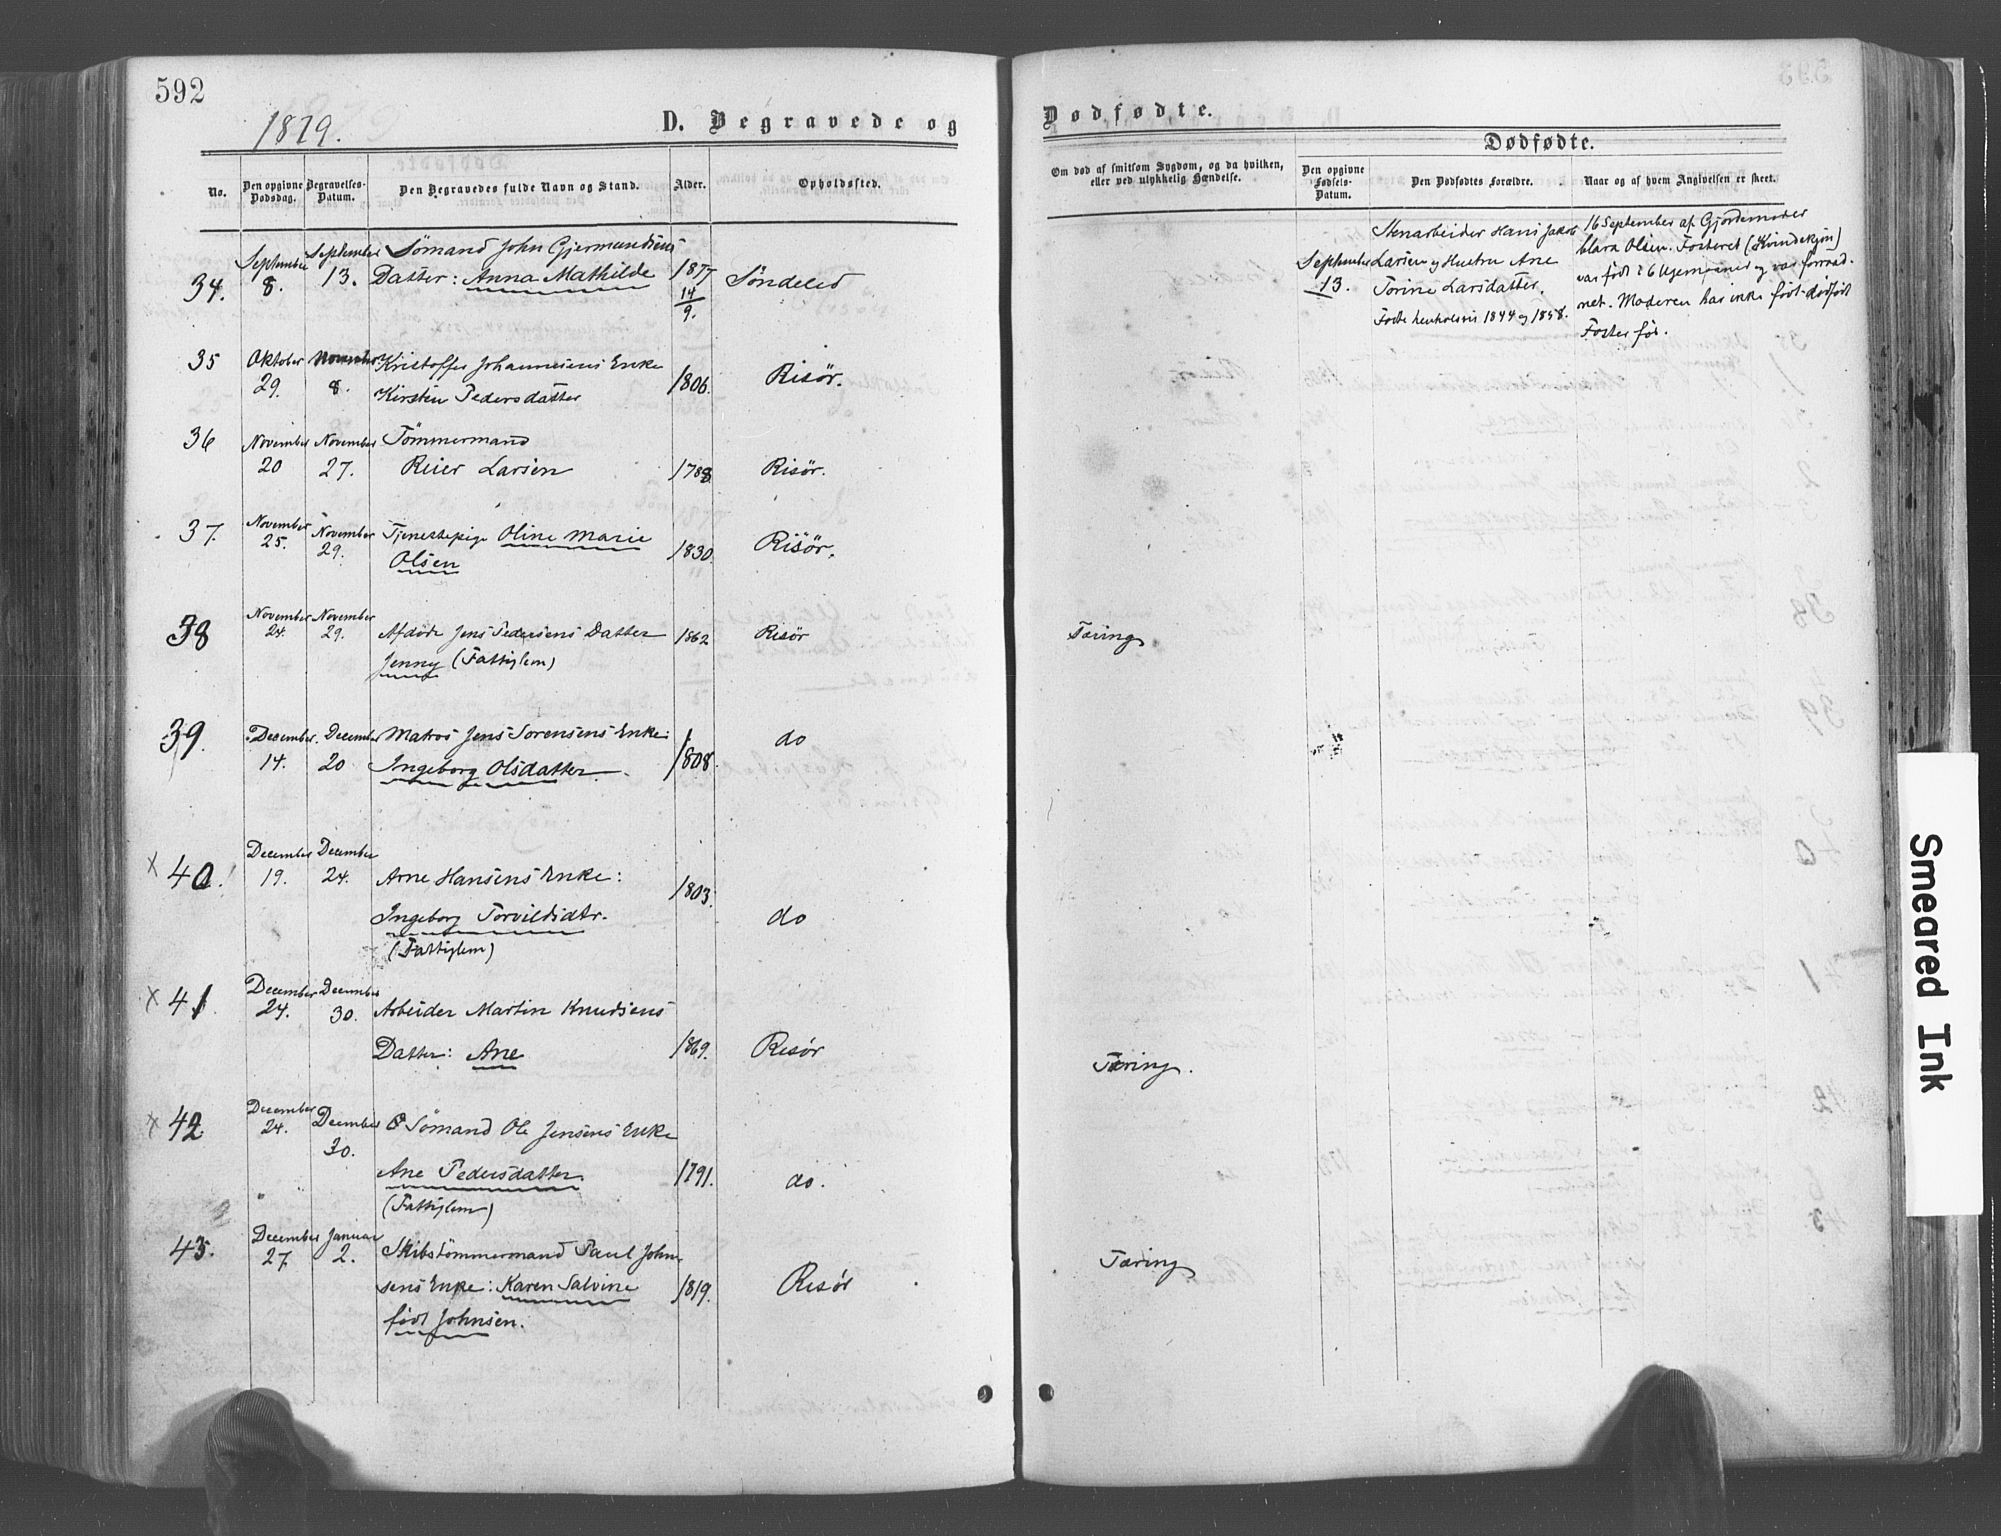 592
1879.
D. Begravede og
No.
Den opgivne Dødsdag.
Begravelses-Datum.
Den Begravedes fulde Navn og Stand.
Alder.
Opholdssted.
34.
September
8.
September
13.
Sømand John Gjermundsens
Datter: Anna Mathilde
1877
14
9.
Søndeled
35
Oktober
29.
November
8.
Kristoffer Johannesens Enke
Kirsten Pedersdatter
1806.
Risör.
36
November
20
November
27.
Tömmermand
Reier Larsen
1788
Risör.
37.
November
25.
November
29.
Tjenestepige Oline Marie
Olsen
1830.
Risör.
38
November
24.
November
29.
Afdöde Jens Pedersens Datter
Jenny (Fattiglem)
1862
Risör
39.
December.
14.
December
20
Matros Jens Sorensens Enke:
Ingeborg Olsdatter.
1808.
do
x 40.
December
19.
December
24.
Arne Hansens Enke:
Ingeborg Torvildsdtr.
(Fattiglem)
1803.
do
x 41.
December
24.
December
30.
Arbeider Martin Knudsens
Datter: Ane
1869.
Risör
x 42
December
24.
December
30.
Sømand Ole Jensens Enke
Ane Pedersdatter.
(Fattiglem)
1791.
do.
43.
December
27
Januar
2.
Skibstømmermand Paul John-
sens Enke: Karen Salvine
født Johnsen.
1819.
Risör
Dødfødte.
Dødfødte.
Om død af smitsom Sygdom, og da hvilken,
eller ved ulykkelig Hændelse.
Den opgivne
Fødsels-
Datum.
Den Dødfødtes Forældre.
Naar og af hvem Angivelsen er skeet.
September
13.
Stenarbeider Hans Jakob
Larsen og Hustru Ane
Torine Larsdatter.
Födte henholdsvis 1844 og 1858.
16 September af Gjordemoder
Clara Olsen. Fosteret (Kvindekjøn)
var født i 6 Ugemaaned og var forraad-
net. Moderen har ikke født dødfødt
Foster før.
Tæring
Tæring.
Tæring
Smeared Ink